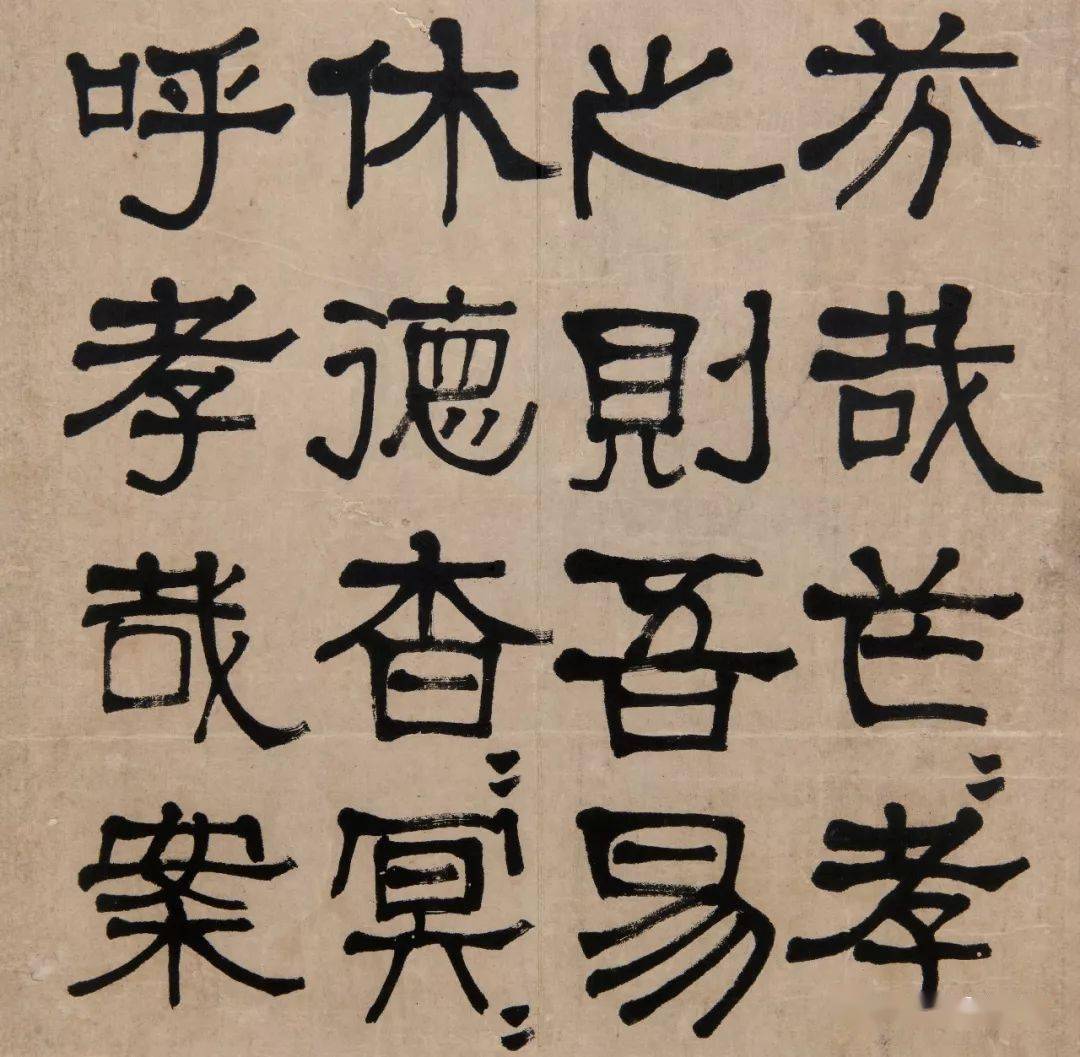 芬哉芒〻孝
之則吾易
休德杳〻冥〻
呼孝哉案